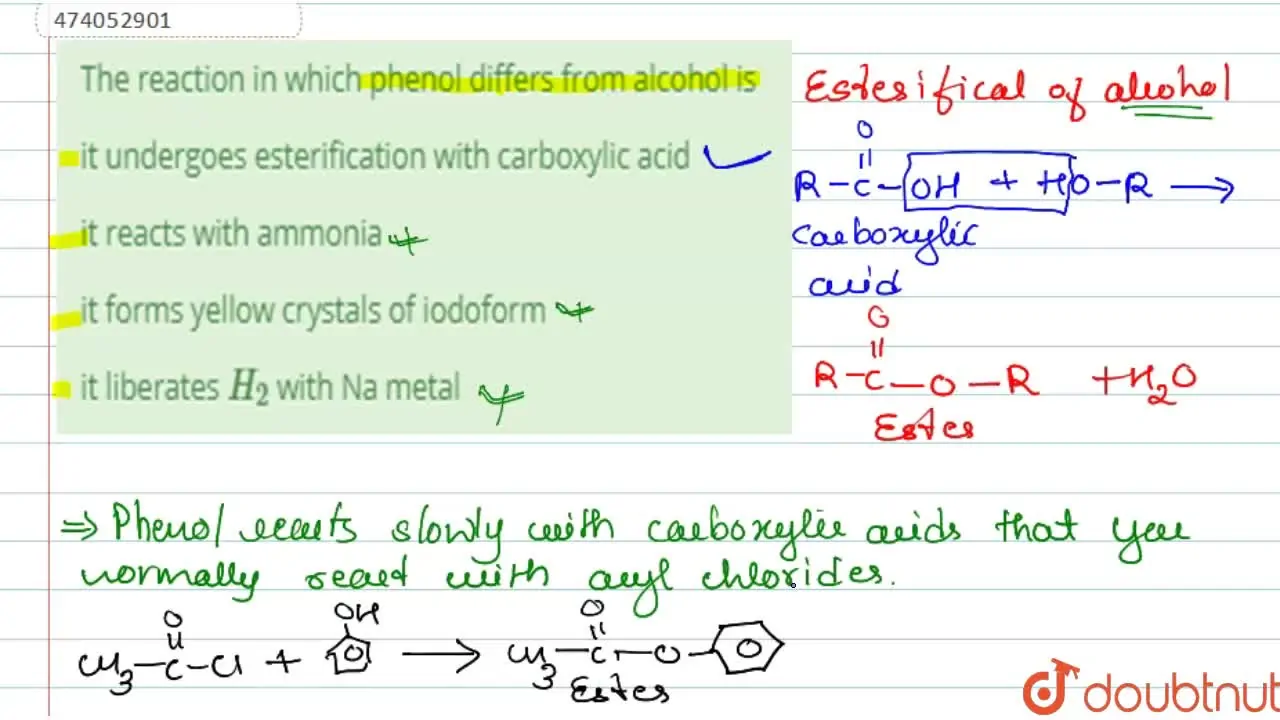 474052901
The reaction in which phenol differs from alcohol is
it undergoes esterification with carboxylic acid
it reacts with ammonia
it forms yellow crystals of iodoform
it liberates H₂ with Na metal
Esterifical of alcohol
O
R-C-OH + HO-R →
carboxylic
acid
O
R-C-O-R + H₂O
Ester
⇒ Phenol reacts slowly with carboxylic acids that you
normally react with acyl chlorides.
O OH O
CH₃-C-Cl + → CH₃-C-O-
Ester
doubtnut